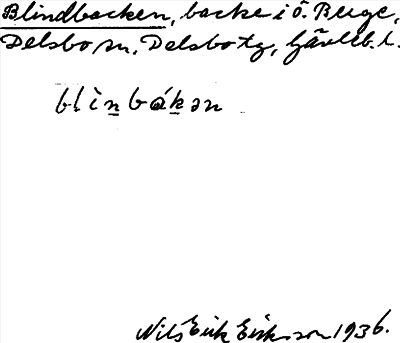 Blindbacken, backe i ö. Berge,
Delsbo sn, Delsbo tg, Gävleb. l.
blìnbákən
Nils Erik Eriksson 1936.